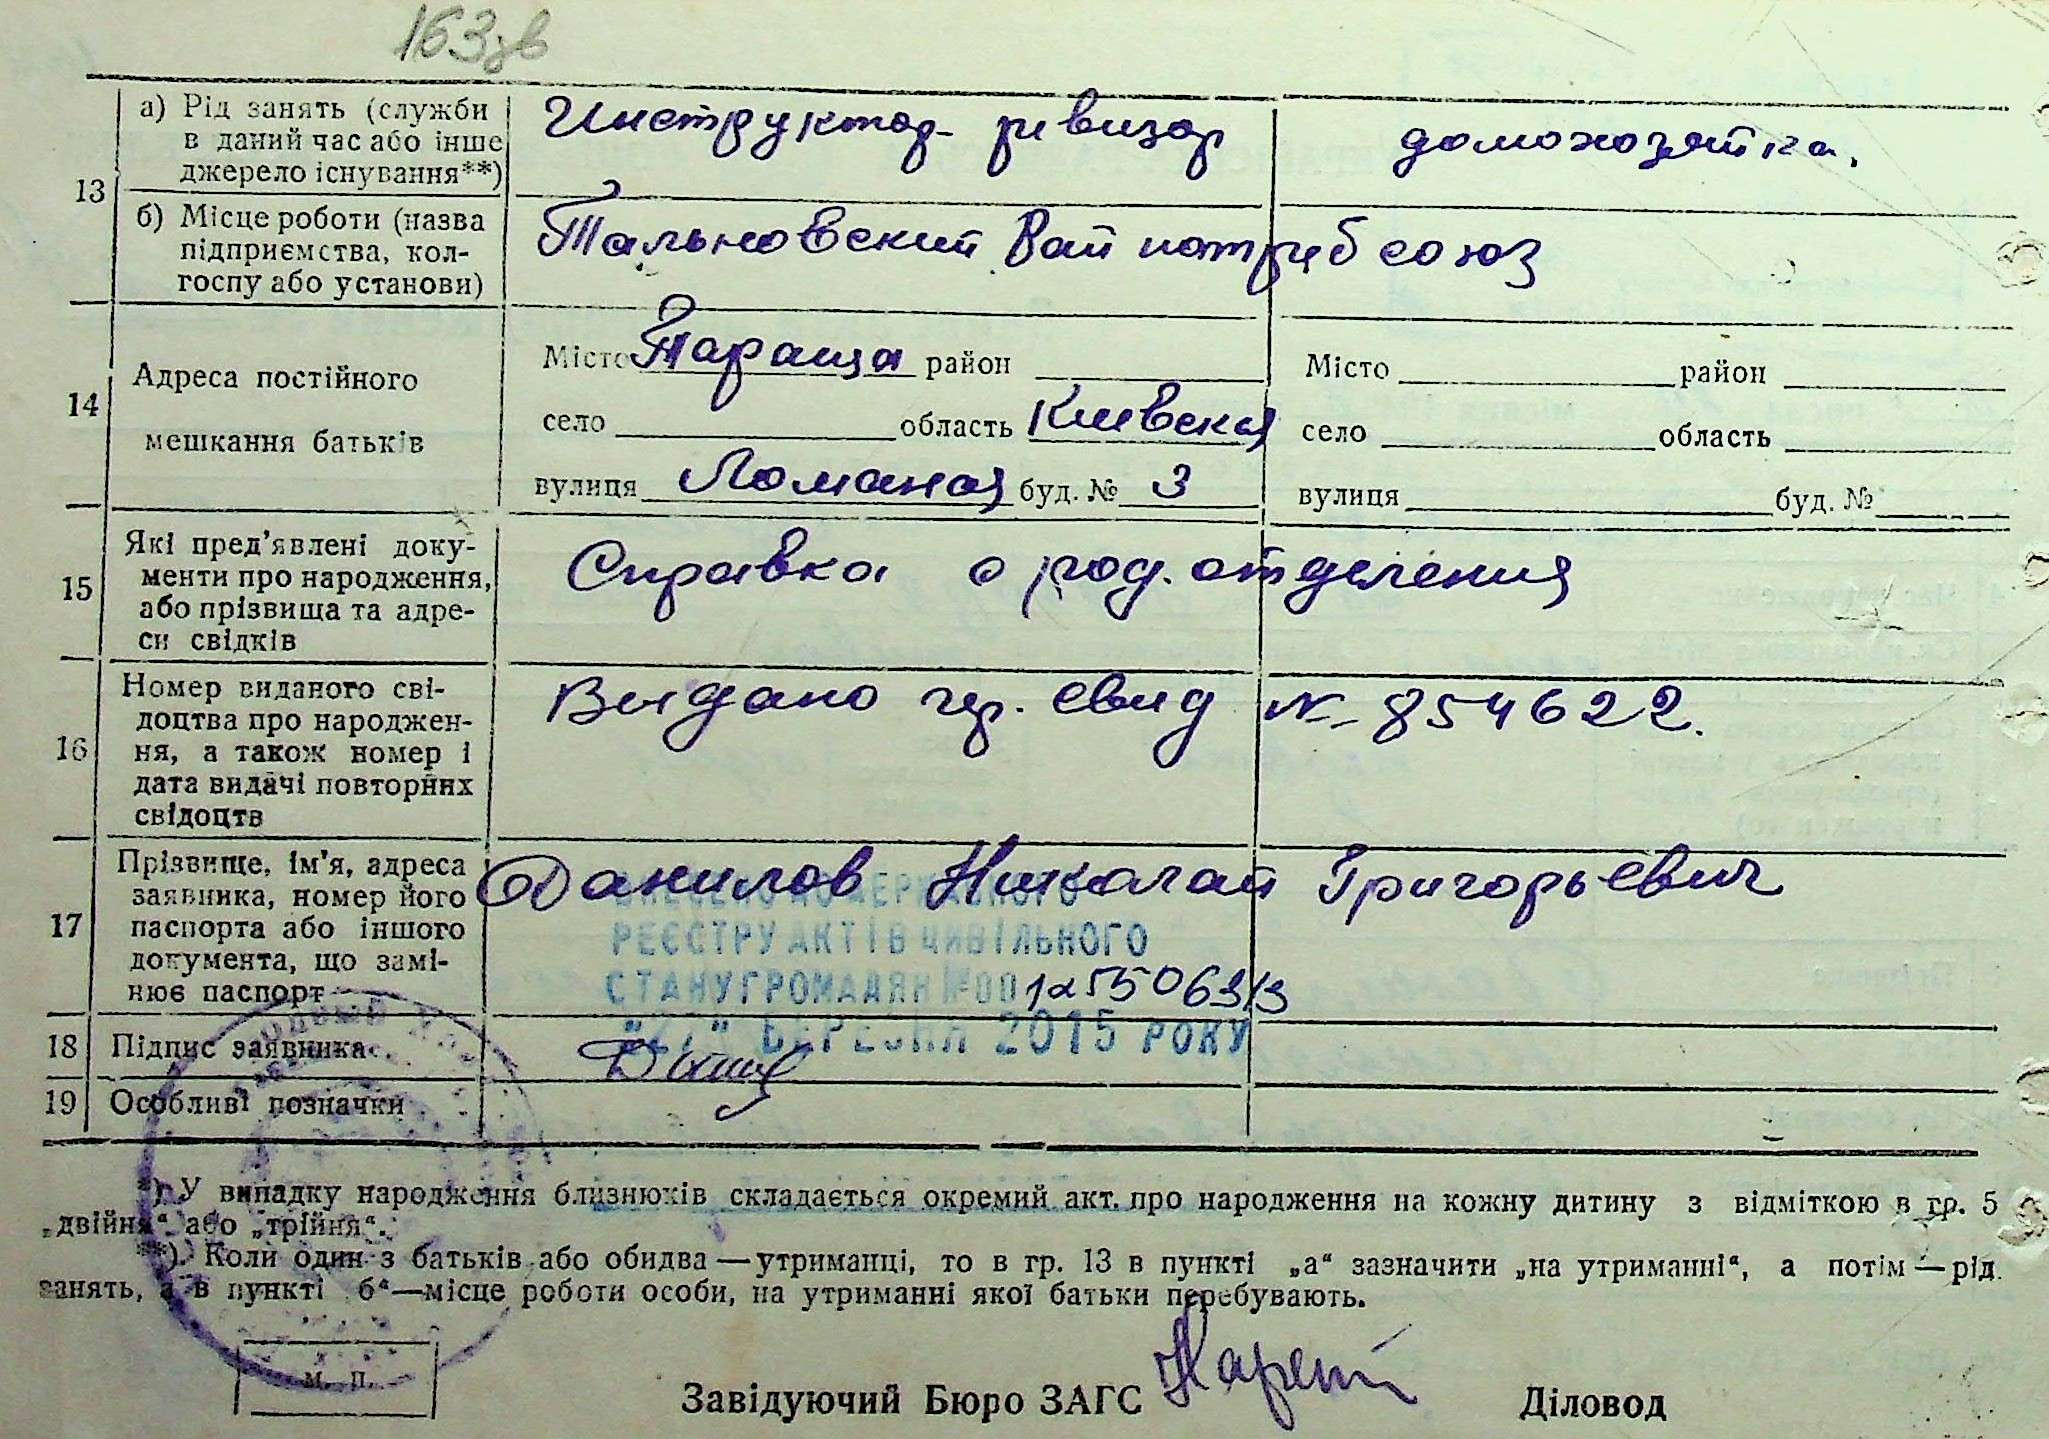 163зв
13
а) Рід занять (служби
в даний час або інше
джерело існування**)
Инструктор-ревизор
домохозяйка.
б) Місце роботи (назва
підприємства, кол-
госпу або установи)
Тальновский Рай потребсоюз
14
Адреса постійного
мешкання батьків
Місто Тараща район
село область Киевская
вулиця буд. № 3
Місто район
село область
вулиця буд. №
15
Які пред’явлені доку-
менти про народження,
або прізвища та адре-
си свідків
Справка о род. отделения
16
Номер виданого сві-
доцтва про народжен-
ня, а також номер і
дата видачі повторних
свідоцтв
Выдано гер. свид № 854622.
17
Прізвище, ім’я, адреса
заявника, номер його
паспорта або іншого
документа, що замі-
нює паспорт
Данилов Николай Григорьевич
ВНЕСЕНО ДО ДЕРЖАВНОГО
РЕЄСТРУ АКТІВ ЦИВІЛЬНОГО
СТАНУ ГРОМАДЯН №00
"27" БЕРЕЗНЯ 2015 РОКУ
18
Підпис заявника
19
Особливі позначки
*) У випадку народження близнюків складається окремий акт. про народження на кожну дитину з відміткою в гр. 5
„двійня“ або „трійня“.
**) Коли один з батьків або обидва—утриманці, то в гр. 13 в пункті „а“ зазначити „на утриманні“, а потім—рід
занять, а в пункті б“—місце роботи особи, на утриманні якої батьки перебувають.
М. П.
Завідуючий Бюро ЗАГС
Діловод